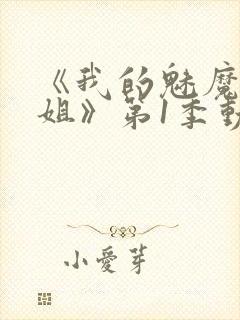 《我的魅魔
姐》第1季動
小愛芽